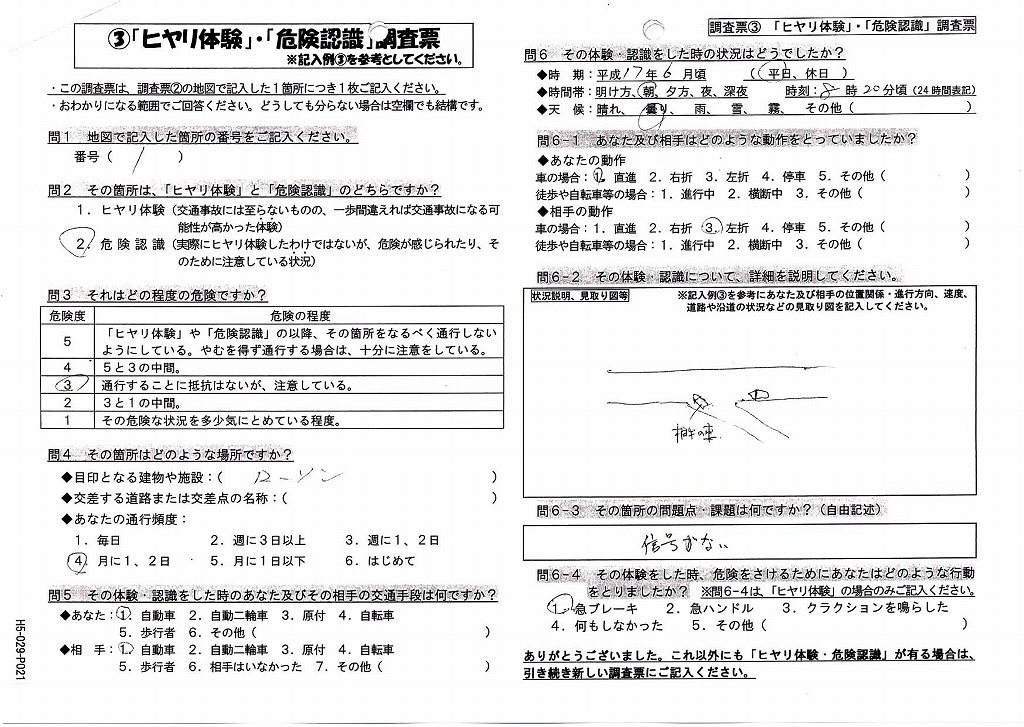 ③「ヒヤリ体験」・「危険認識」調査票
※記入例③を参考としてください。
・この調査票は、調査票②の地図で記入した1箇所につき1枚ご記入ください。
・おわかりになる範囲でご回答ください。どうしても分らない場合は空欄でも結構です。
問1 地図で記入した箇所の番号をご記入ください。
番号( 1 )
問2 その箇所は、「ヒヤリ体験」と「危険認識」のどちらですか?
1.ヒヤリ体験(交通事故には至らないものの、一歩間違えれば交通事故になる可
能性が高かった体験)
2.危険認識(実際にヒヤリ体験したわけではないが、危険が感じられたり、そ
のために注意している状況)
問3 それはどの程度の危険ですか?
危険度 危険の程度
5 「ヒヤリ体験」や「危険認識」の以降、その箇所をなるべく通行しない
ようにしている。やむを得ず通行する場合は、十分に注意をしている。
4 5と3の中間。
3 通行することに抵抗はないが、注意している。
2 3と1の中間。
1 その危険な状況を多少気にとめている程度。
問4 その箇所はどのような場所ですか?
◆目印となる建物や施設:( ローソン )
◆交差する道路または交差点の名称:( )
◆あなたの通行頻度:
1.毎日 2.週に3日以上 3.週に1、2日
4.月に1、2日 5.月に1日以下 6.はじめて
問5 その体験・認識をした時のあなた及びその相手の交通手段は何ですか?
◆あなた:1.自動車 2.自動二輪車 3.原付 4.自転車
5.歩行者 6.その他( )
◆相 手:1.自動車 2.自動二輪車 3.原付 4.自転車
5.歩行者 6.相手はいなかった 7.その他( )
H5-029-P021
調査票③ 「ヒヤリ体験」・「危険認識」調査票
問6 その体験・認識をした時の状況はどうでしたか?
◆時 期:平成17年6月頃 (平日、休日)
◆時間帯:明け方、朝、夕方、夜、深夜 時刻:8時20分頃(24時間表記)
◆天 候:晴れ、曇り、 雨、 雪、 霧、 その他( )
問6-1 あなた及び相手はどのような動作をとっていましたか?
◆あなたの動作
車の場合:1.直進 2.右折 3.左折 4.停車 5.その他( )
徒歩や自転車等の場合:1.進行中 2.横断中 3.その他( )
◆相手の動作
車の場合:1.直進 2.右折 3.左折 4.停車 5.その他( )
徒歩や自転車等の場合:1.進行中 2.横断中 3.その他( )
問6-2 その体験・認識について、詳細を説明してください。
状況説明、見取り図等 ※記入例③を参考にあなた及び相手の位置関係・進行方向、速度、
道路や沿道の状況などの見取り図を記入してください。
相手の車
問6-3 その箇所の問題点・課題は何ですか?(自由記述)
信号がない
問6-4 その体験をした時、危険をさけるためにあなたはどのような行動
をとりましたか? ※問6-4は、「ヒヤリ体験」の場合のみご記入ください。
1.急ブレーキ 2.急ハンドル 3.クラクションを鳴らした
4.何もしなかった 5.その他( )
ありがとうございました。これ以外にも「ヒヤリ体験・危険認識」が有る場合は、
引き続き新しい調査票にご記入ください。